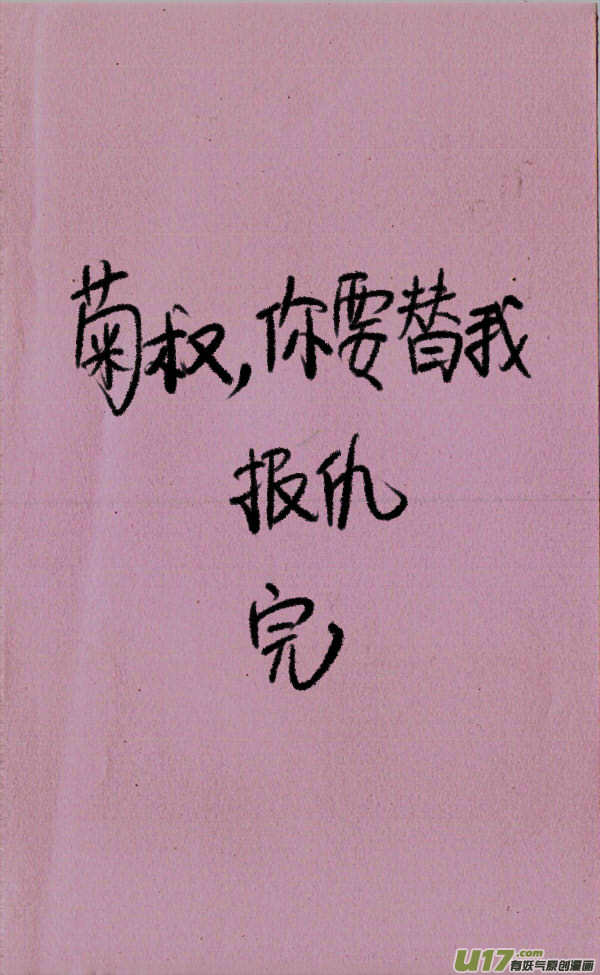 菊权,你要替我
报仇
完
U17.com
有妖气原创漫画